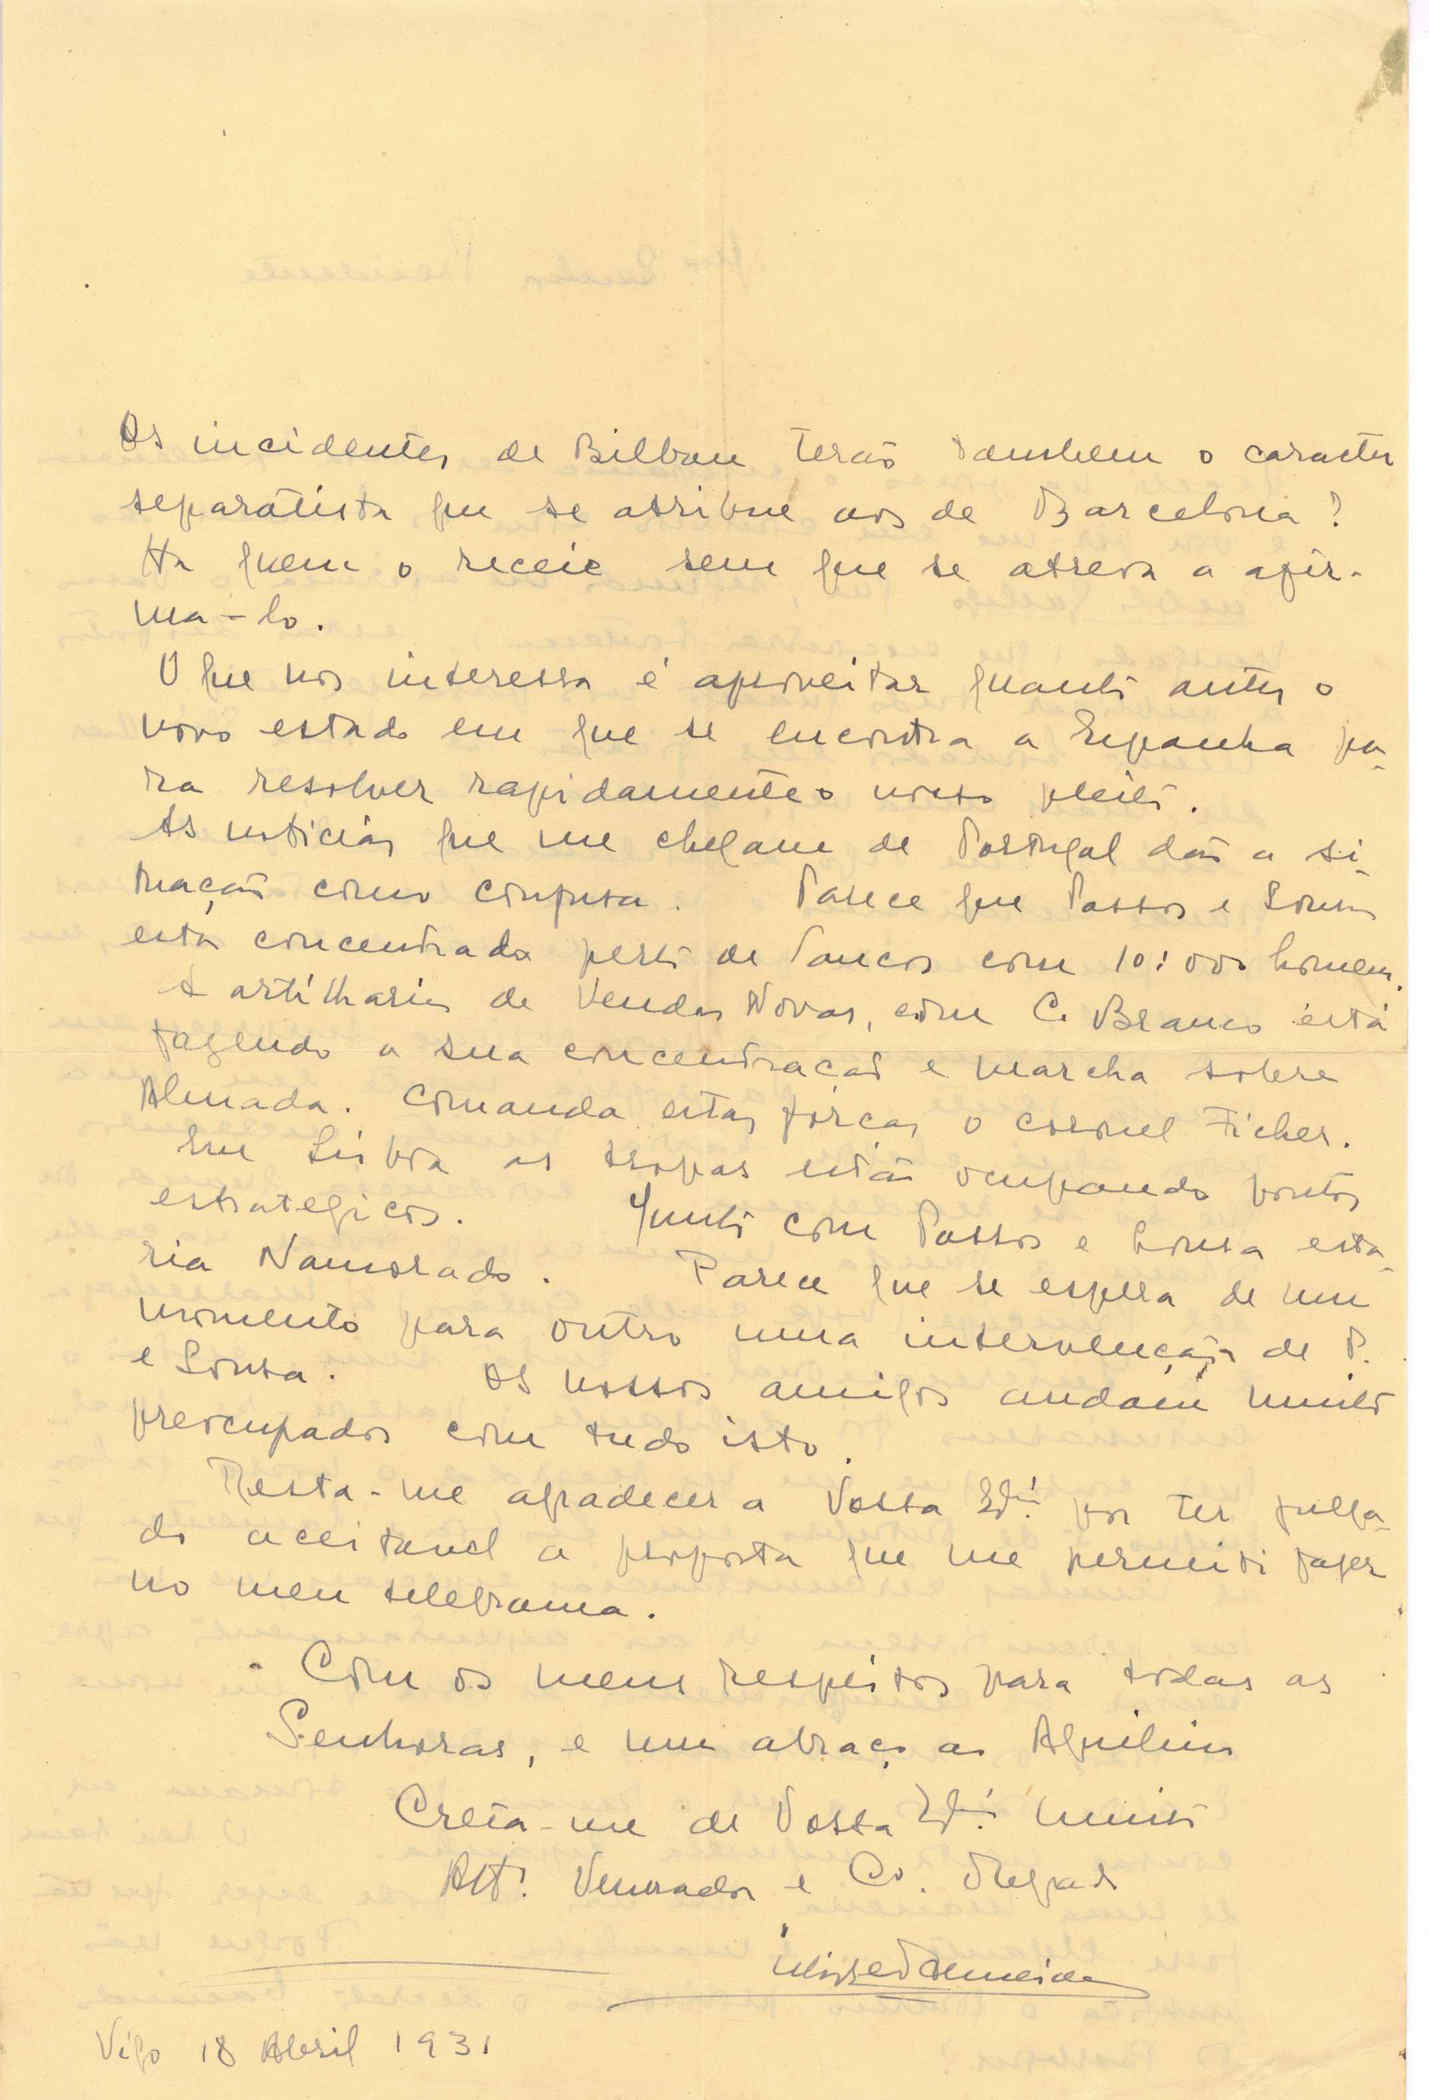 Os incidentes de Bilbau terão tambem o caracter
separatista que se atribue aos de Barcelona?
Ha quem o receie sem que se atreva a afir-
ma-lo.
O que nos interessa é aproveitar quanto antes o
novo estado em que se encontra a Espanha pa-
ra resolver rapidamente o nosso pleito.
As noticias que me chegam de Portugal dão a si-
tuação como confusa. Parece que Passos e Sousa
está concentrado perto de Tancos com 10:000 homens.
A artilharia de Vendas Novas, com C. Branco está
fazendo a sua concentração e marcha sobre
Almada. Comanda estas forças o coronel Ficher.
Em Lisboa as tropas estão ocupando pontos
estrategicos. Junto com Passos e Sousa esta-
ria Namorado. Parece que se espera de um
momento para outro uma intervenção de P.
e Sousa. Os nossos amigos andam muito
preocupados com tudo isto.
Resta-me agradecer a Vossa Exª. por ter julga-
do aceitavel a proposta que me permiti fazer
no meu telegrama.
Com os meus respeitos para todas as
Senhoras, e um abraço ao Aquilino
Creia-me de Vossa Exª. muito
Attº. Venerador e Co. Obrigado
Vigo 18 Abril 1931